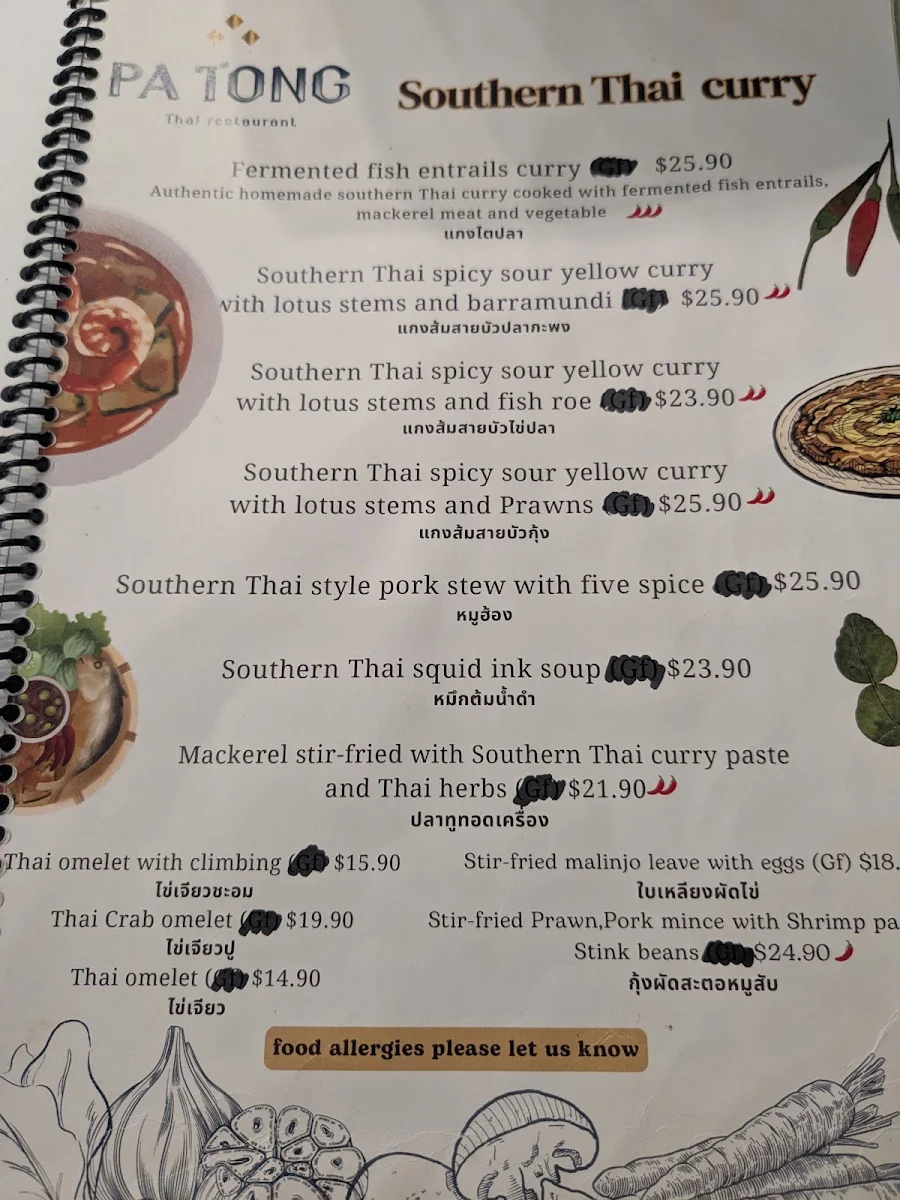 PA TONG
Thai restaurant
Southern Thai curry
Fermented fish entrails curry $25.90
Authentic homemade southern Thai curry cooked with fermented fish entrails,
mackerel meat and vegetable
แกงไตปลา
Southern Thai spicy sour yellow curry
with lotus stems and barramundi (Gf) $25.90
แกงส้มสายบัวปลากะพง
Southern Thai spicy sour yellow curry
with lotus stems and fish roe (Gf) $23.90
แกงส้มสายบัวไข่ปลา
Southern Thai spicy sour yellow curry
with lotus stems and Prawns (Gf) $25.90
แกงส้มสายบัวกุ้ง
Southern Thai style pork stew with five spice (Gf) $25.90
หมูฮ้อง
Southern Thai squid ink soup (Gf) $23.90
หมึกต้มน้ำดำ
Mackerel stir-fried with Southern Thai curry paste
and Thai herbs (Gf) $21.90
ปลาทูทอดเครื่อง
Thai omelet with climbing (Gf) $15.90
ไข่เจียวชะอม
Thai Crab omelet (Gf) $19.90
ไข่เจียวปู
Thai omelet (Gf) $14.90
ไข่เจียว
Stir-fried malinjo leave with eggs (Gf) $18.
ใบเหลียงผัดไข่
Stir-fried Prawn,Pork mince with Shrimp pa
Stink beans $24.90
กุ้งผัดสะตอหมูสับ
food allergies please let us know